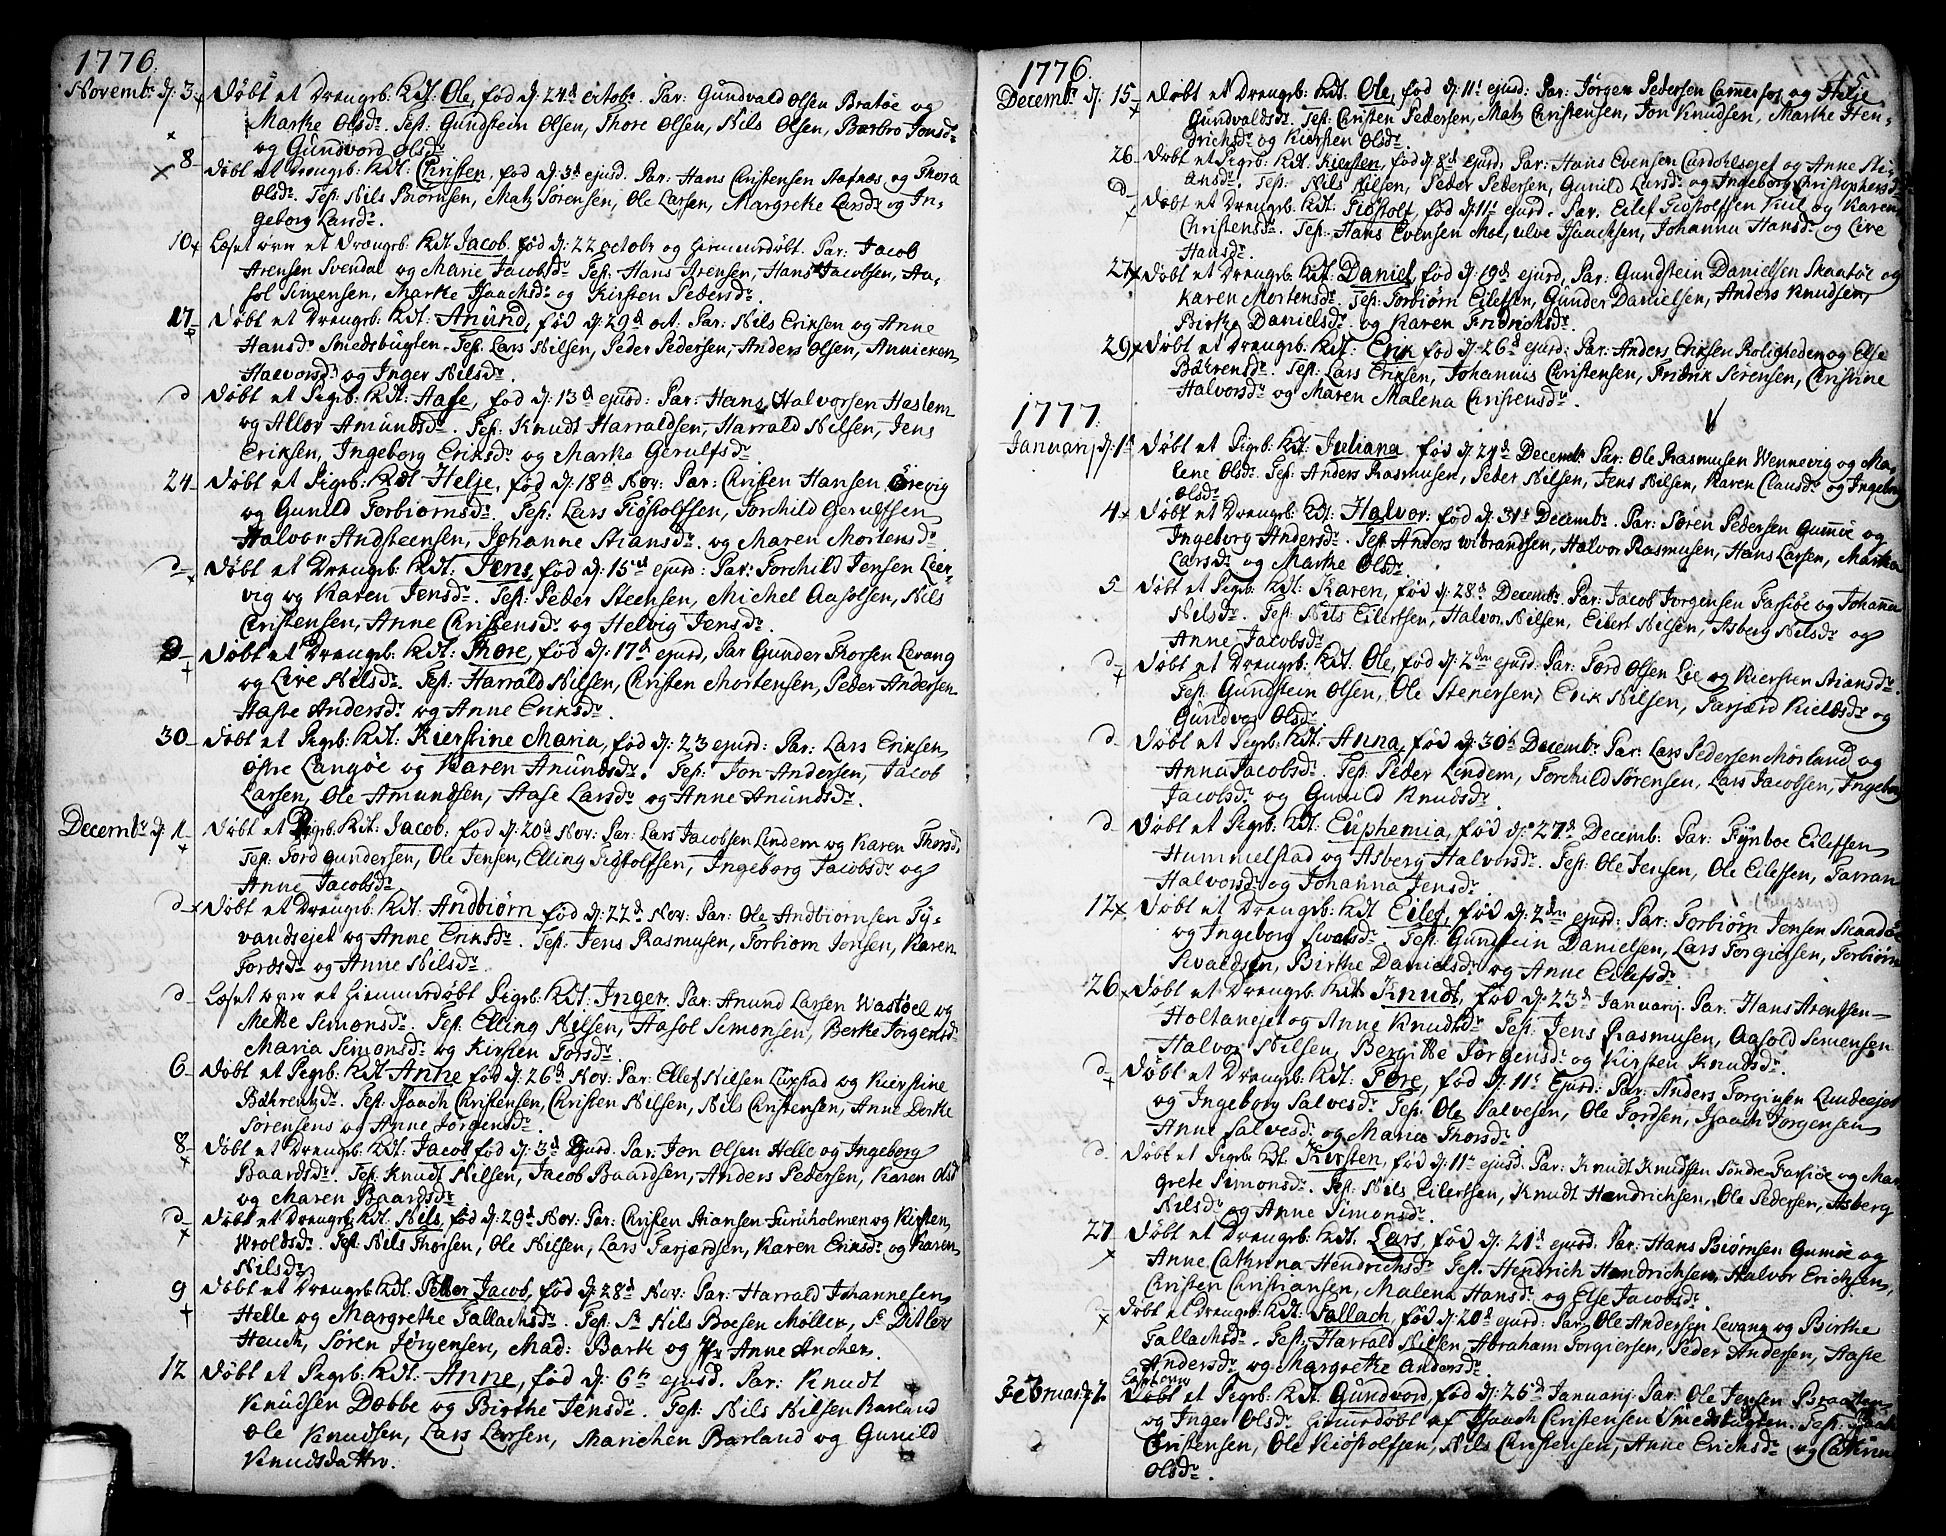 1776.
Novembr d. 3. Døbt et Drengeb: Kdt. Ole, fød d. 24d Octobr. Par: Gundvald Olsen Bratøe og
Marthe Olsdr. Test: Gundstein Olsen, Thore Olsen, Nils Olsen, Barbro Jonsdr
og Gundvord Olsdr.
8 Døbt et Drengeb: Kdt: Christen, fød d. 3d ejusd. Par: Hans Christensen Aafnæs og Thora
Olsdr. Test: Nils Biørnsen, Matz Sørensen, Ole Larsen, Margrethe Larsdr og In-
geborg Larsdr.
10 Læset over et Drengeb: Kdt Jacob fød d. 22 octobr og hiemmedøbt. Par: Jacob
Arensen Svendal og Marie Jacobsdr. Test: Hans Arensen, Hans Jacobsen, Aa-
sol Simensen, Marthe Isaachsdr og Kirsten Pedersdr.
17 Døbt et Drengeb: Kdt: Anund, fød d: 29d oct: Par: Nils Eriksen og Anne
Hansdr Smedsbugten. Test: Lars Nilsen, Peder Pedersen, Anders Olsen, Anniken
Halvorsdr og Inger Nilsdr.
d Døbt et Pigeb: Kdt: Aase, fød d: 13d ejusd: Par: Hans Halvorsen Haslem
og Allov Amundsdr. Test: Knudt Harraldsen, Harrald Nilsen, Jens
Eriksen, Ingeborg Eriksdr og Marthe Gerulfsdr.
24 Døbt et Pigeb: Kdt Helje, fød d: 18d Nov: Par: Christen Hansen Ørevig
og Gunild Torbiørnsdr. Test: Lars Tiøstolfsen, Torchild Gerulfsen
Halvor Andsteensen, Johanne Stiansdr. og Maren Mortensdr.
d Døbt et Drengeb: Kdt: Jens, fød d: 15 ejusd: Par: Torchild Jensen Leer-
vig og Karen Jensdr. Test: Peder Steensen, Michel Aasolsen, Nils
Christensen, Anne Christensdr og Helvig Jensdr.
d Døbt et Drengeb: Kdt: Thore, fød d: 17d ejusd, Par Gunder Thorsen Levang
og Live Nilsdr. Test: Harrald Nilsen, Christen Mortensen, Peder Andersen
Haste Andersdr og Anne Eriksdr.
30 Døbt et Pigeb: Kdt: Kierstine Maria, fød d: 23 ejusd: Par: Lars Eriksen
østre Langøe og Karen Anundsdr. Test: Jon Andersen, Jacob
Larsen, Ole Amundsen, Aase Larsdr og Anne Anundsdr.
Decembr d. 1 Døbt et Kdt: Jacob, fød d: 20d Nov: Par: Lars Jacobsen Lindem og Karen Thorsdr.
Test: Tord Gundersen, Ole Jensen, Elling Tiøstolfsen, Ingeborg Jacobsdr og
Anne Jacobsdr.
d Døbt et Drengeb: Kdt. Andbiørn fød d: 22d Nov: Par: Ole Andbiørnsen Ty-
vandsejet og Anne Eriksdr. Test: Jens Rasmusen, Torbiørn Jonsen, Karen
Tordsdr og Anne Nilsdr.
d Læset over et hiemmedøbt Pigeb: Kdt: Inger. Par: Anund Larsen Wastøel og
Mette Simonsdr. Test: Elling Nilsen, Aasol Simonsen, Berthe Jørgensdr
Maria Simonsdr og Kirsten Torsdr.
6 Døbt et Pigeb: Kdt Anne fød d: 26d Nov: Par: Ellef Nilsen Lufstad og Kierstine
Bæhrentzdr. Test: Isaach Christensen, Christen Nilsen, Nils Christensen, Anne Dorthe
Sorensens og Anne Jørgensdr.
8 Døbt et Drengeb: Kdt: Jacob fød d: 3d Ejusd. Par: Jon Olsen Helle og Ingeborg
Baardsdr. Test: Knudt Nilsen, Jacob Baardsen, Anders Pedersen, Karen Olsdr
og Maren Baardsdr.
d Døbt et Drengeb: Kdt: Nils, fød d: 29d Nov: Par: Christen Stiansen Furuholmen og Kirsten
Wroldsdr. Test: Nils Thorsen, Ole Nilsen, Lars Tarjærdsen, Karen Eriksdr og Karen
Nilsdr.
9 Døbt et Drengeb: Kdt: Petter Jacob, fød d: 28d Nov: Par: Harrald Johannesen
Helle og Margrethe Tallachsdr. Test: Sr Nils Boesen Møller, Sr Ditlev
Heuch, Søren Jørgensen, Mad: Barth og Jfr Anne Anchers.
12 Døbt et Pigeb: Kdt: Anne, fød d: 6te ejusd. Par: Knudt
Knudsen Dobbe og Birthe Jensdr. Test: Nils Nilsen Barland
Ole Knudsen, Lars Larsen, Marichen Barland og Gunild
Knudsdatter.
1776.
Decembr d: 15 Døbt et Drengeb: Kdt. Ole, fød d: 11t ejusd: Par: Jørgen Pedersen Cammerfos og Helje
Gundvaldsdr. Test: Christen Pedersen, Matz Christensen, Jon Knudsen, Marthe Hen-
drichsdr og Kiersten Olsdr.
26 Døbt et Pigeb: Kdt. Kiersten, fød d: 8d Ejusd. Par: Hans Evensen og Anne Sti-
ansdr. Test: Nils Nilsen, Peder Pedersen, Gunild Larsdr og Ingeborg Christophersdr
d Døbt et Drengeb: Kdt: Tiøstolf, fød d: 11t ejusd. Par. Eilef Tiøstolfsen Kiil og Karen
Christensdr. Test: Hans Evensen Moe, Ulve Isaachsen, Johanna Hansdr og Live
Hansdr.
27 Døbt et Drengeb: Kdt: Daniel, fød d: 19d ejusd, Par: Gundstein Danielsen Skaatøe og
Karen Mortensdr. Test: Torbiørn Eilefsen, Gunder Danielsen, Anders Knudsen,
Birthe Danielsdr. og Karen Fridrichsdr.
29 Døbt et Drengeb: Kdt: Erik fød d: 26d ejusd: Par: Anders Eriksen Roligheden og Else
Bæhrensdr. Test: Lars Eriksen, Johannes Christensen, Fridrik Sørensen, Christine
Halvorsdr og Maren Malena Christensdr.
1777.
Januarj d: 1d Døbt et Pigeb: Kdt: Juliana fød d: 24d Decembr Par: Ole Rasmusen Wennevig og Ma-
lene Olsdr. Test: Anders Rasmusen, Peder Nilsen, Jens Nilsen, Karen Clausdr og Ingeborg
Olsdr.
4 Døbt et Drengeb: Kdt: Halvor, fød d: 31d Decembr. Par: Søren Pedersen Gumøe og
Ingeborg Andersdr. Test: Anders Wibrandsen, Halvor Rasmusen, Hans Larsen, Martha
Larsdr og Marthe Olsdr.
5 Døbt et Pigeb: Kdt: Karen, fød d: 28d Decembr. Par: Jacob Jørgensen Farsiøe og Johanna
Nilsdr. Test: Nils Eilertsen, Halvor Nilsen, Eilert Nilsen, Asberg Nilsdr og
Anne Jacobsdr.
d Døbt et Drengeb: Kdt: Ole, fød d: 2den ejusd: Par: Tord Olsen Lie og Kiersten Stiansdr.
Test: Gundstein Olsen, Ole Stenersen, Erik Nilsen, Tarjærd Kieldsdr og
Gundvor Olsdr.
d Døbt et Pigeb: Kdt: Anna, fød d: 30t Decembr. Par: Lars Pedersen Mørland og
Anna Jacobsdr. Test: Peder Lindem, Torchild Sørensen, Lars Jacobsen, Ingeborg
Jacobsdr og Gunild Knudsdr.
d Døbt et Pigeb: Kdt: Euphemia, fød d: 27d Decemb: Par: Fynboe Eilefsen
Hummelstad og Asberg Halvorsdr. Test: Ole Jensen, Ole Eilefsen, Tarran
Halvorsdr og Johanna Jensdr.
12 Døbt et Drengeb: Kdt Eilef, fød d: 2den ejusd: Par: Torbiørn Jensen Skaadøe
og Ingeborg Rvalsdr. Test: Gundstein Danielsen, Lars Torgiersen, Torbiørn
Rvaldsen, Birthe Danielsdr og Anne Eilefsdr.
26 Døbt et Drengeb: Kdt Knudt, fød d: 23d Januarij. Par: Hans Arentsen
Holtanejet og Anne Knudsdr. Test: Jens Rasmusen, Aasold Simensen
Halvor Nilsen, Bergitte Jørgensdr og Kirsten Knudsdr.
d Døbt et Drengeb: Kdt: Tore, fød d: 11t Ejusd: Par: Anders Torginsen Lundeejet
og Ingeborg Salvesdr. Test: Ole Salvesen, Ole Tordsen, Isaach Jørgensen
Anne Salvesdr og Maria Thorsdr.
d Døbt et Pigeb: Kdt: Kirsten, fød d: 11te ejusd: Par: Knudt Knudsen Søndre Farsiøe og Mar-
grete Simonsdr. Test: Nils Eilertsen, Knudt Hendrichsen, Ole Pedersen, Asberg
Nilsdr og Anne Simonsdr.
27 Døbt et Drengeb: Kdt: Lars, fød d: 21d ejusd: Par: Hans Biørnsen Gumøe og
Anne Cathrina Hendrichsdr. Test: Hendrich Hendrichsen, Halvor Erichsen,
Christen Christiansen, Malena Hansdr og Else Jacobsdr.
d Døbt et Drengeb: Kdt: Tallach, fød d: 20d ejusd: Par: Ole Andersen Levang og Birthe
Tallachsdr. Test: Harrald Nilsen, Abraham Torgiersen, Peder Andersen, Haste
Andersdr og Margrethe Andersdr.
Februarij d: 2. Døbt et Pigeb: Kdt: Gundvord, fød d: 26d Januarij: Par: Ole Jensen Braaten
og Inger Olsdr. hiemdøbt af Isaach Christensen Smedsbugten. Test: Isaach
Christensen, Ole Kiøstolfsen, Nils Christensen, Anne Erichsdr og Cathrine
Olsdr.